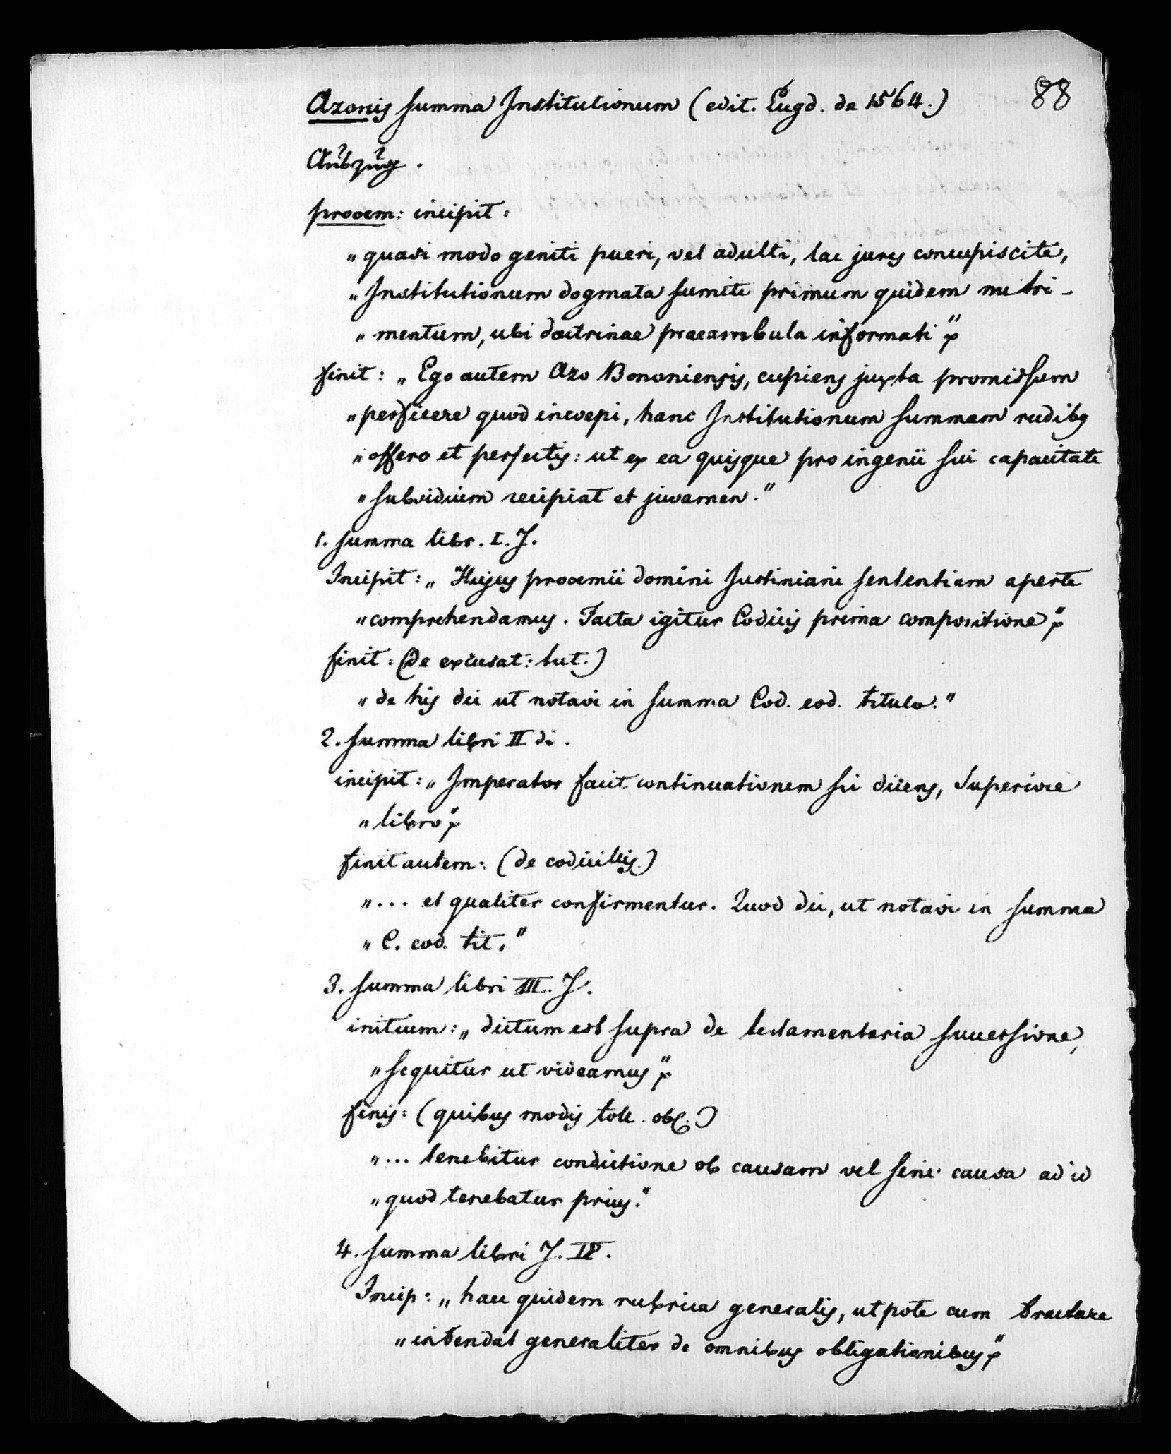 Azonis summa Institutionum (edit. Lugd. de 1564.) 88
Auszug.
prooem: incipit:
„quasi modo geniti pueri, vel adulti, lac juris concupiscite,
„Institutionum dogmata sumite primum quidem nutri-
„mentum, ubi doctrinae praeambula informati“
finit: „Ego autem Azo Bononiensis, cupiens juxta promissum
„perficere quod incoepi, hanc Institutionum summam rudibus
„offero et perfectis: ut ex ea quisque pro ingenii sui capacitate
„subsidium recipiat et juvamen.“
1. summa libr. I. J.
Incipit: „Hujus prooemii domini Justiniani sententiam aperte
„comprehendamus. Facta igitur Codicis prima compositione“
finit: (de excusat: tut.)
„de his dic ut notavi in summa Cod. eod. titulo.“
2. summa libri II di.
incipit: „Imperator facit continuationem sui dicens, Superiore
„libro“
finit autem: (de codicillis)
„... et qualiter confirmentur. Quod dic, ut notavi in summa
„C. eod. tit.“
3. summa libri III. J.
initium: „dictum est supra de testamentaria successione,
„sequitur ut videamus“
finis: (quibus modis toll. obl.)
„... tenebitur condictione ob causam vel sine causa ad id
„quod tenebatur prius.“
4. summa libri J. IV.
Incip: „haec quidem rubrica generalis, utpote cum tractare
„intendat generaliter de omnibus obligationibus“